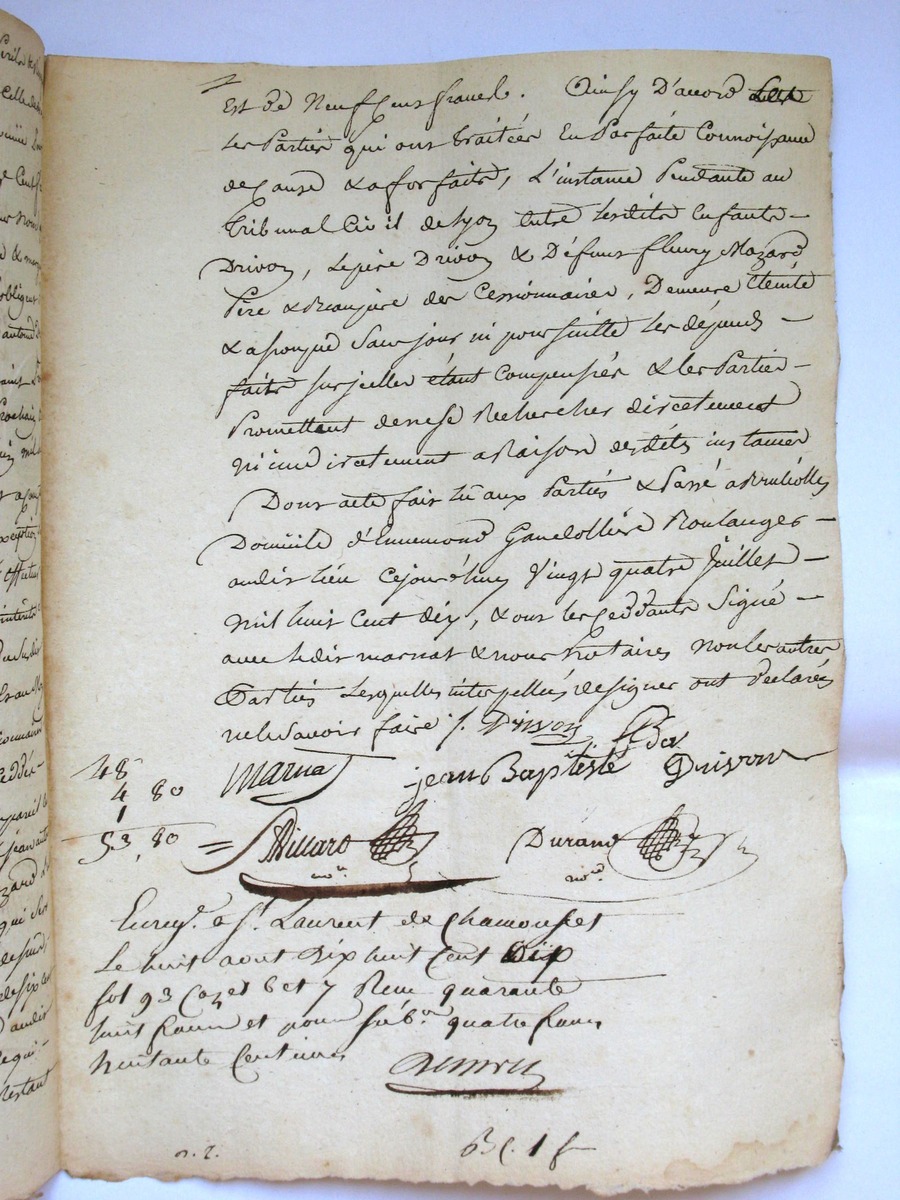 est de Neuf Cens francs. Ainsy D'accord
les Partier qui ont traitées En Parfaite Connoissance
de Cause & a forfaits, L'instance Pendante au
Tribunal Civil de Lyon Entre lesdits Enfants —
Drivon, Lepère Drivon & Défunt fleury Mazard
Père & Beaupère des Cessionnaires, Demeure Eteinte
& assoupie Sans jour ni poursuitte les dépends —
faits sur icelles étant Compensés & les Parties —
Promettent de ne se Rechercher directement
ni indirectement a Raison desdits instances
Dont acte fait lû aux Partiés & Passé a Brulliolles
Domicile d'Ennemond Gandollière Boulanger —
audit lieu Cejourdhuy Vingt quatre Juillet —
mil huit Cent dix, & ont les Ceddants Signé —
avec ledit marnas & nous Notaires non les autres
Partiés Lesquelles interpellées de signer ont Déclarés
ne le Savoir faire ./. Drivon
Marnas jean Baptiste Drivon
48
4 80
1
53, 80 = Billard Durand
nore nore
Enregé. a St. Laurent de Chamousset
Le huit aout Dix huit Cent Dix
fol 93 Cazes 6 et 7 Recu quarante
huit francs et pour Subon quatre francs
huitante Centimes